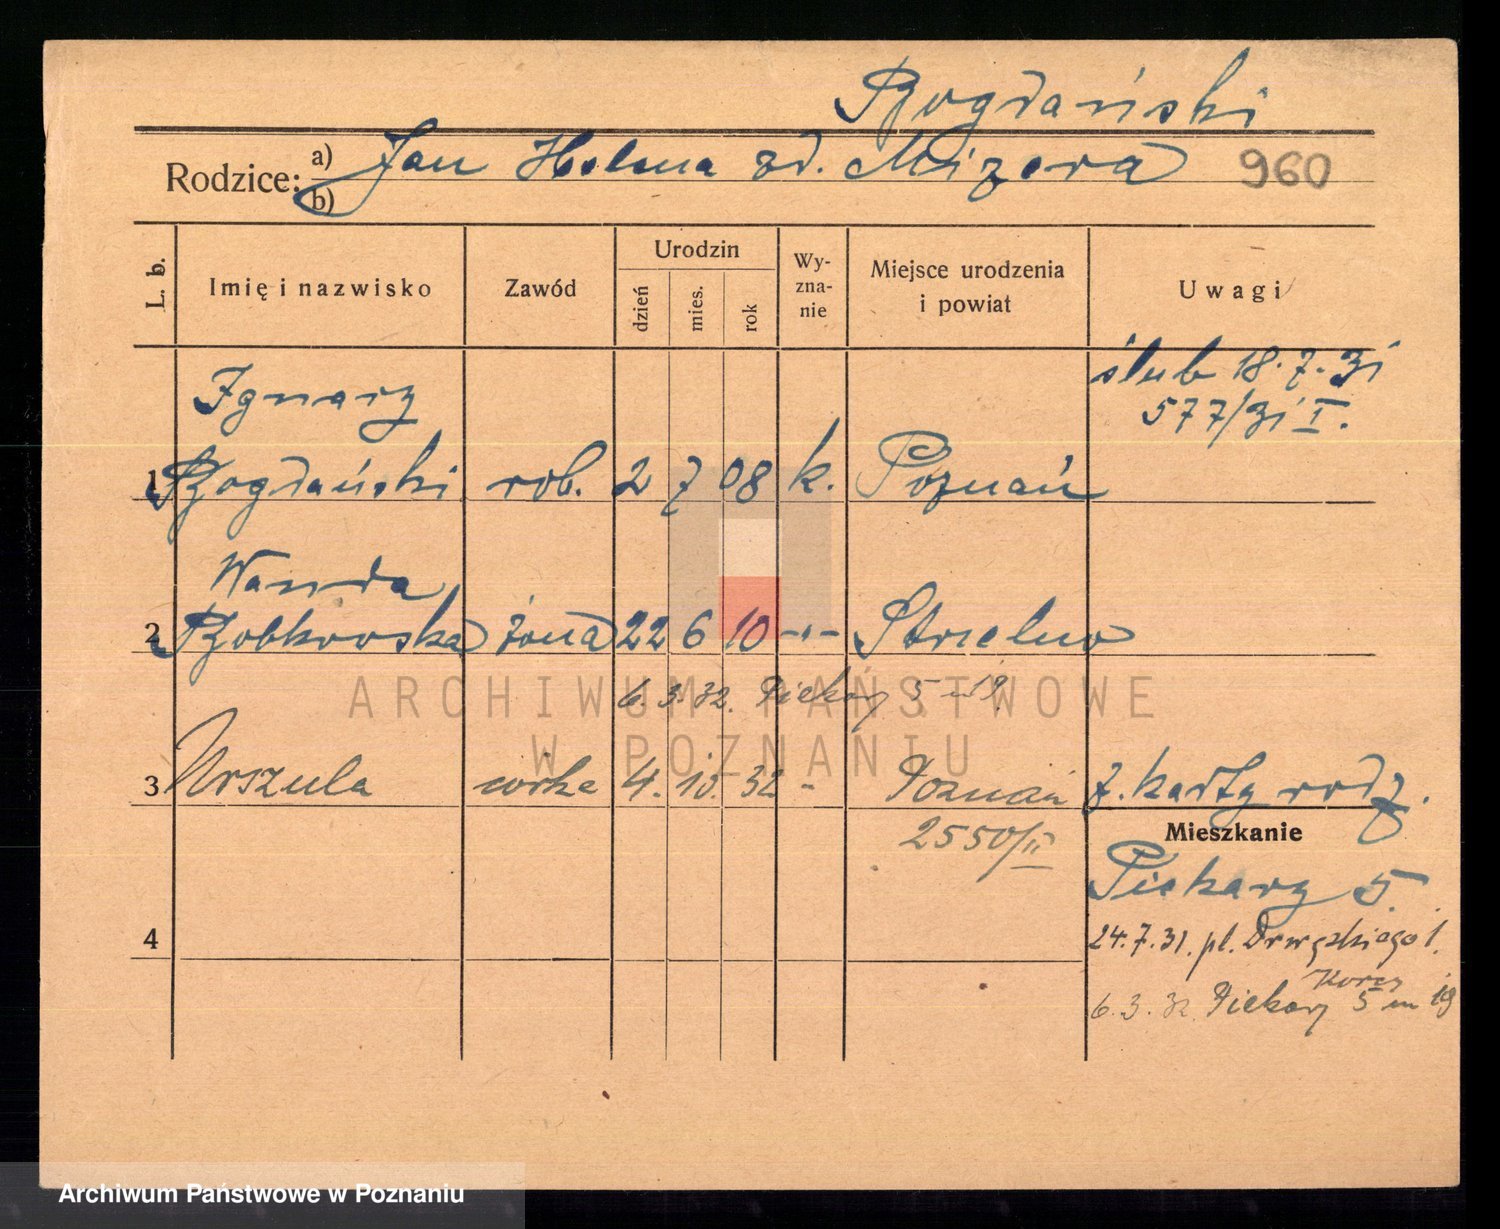 Bogdański
Rodzice: a) Jan Helena zd. Mizera 960
b)
L. b. Imię i nazwisko Zawód Urodzin dzień mies. rok Wy-zna-nie Miejsce urodzenia i powiat Uwagi
ślub 18.7.31
577/31 I.
Ignacy
1 Bogdański rob. 2 7 08 k. Poznań
Wanda
2 Bobkowska żona 22 6 10 -"- Strzelno
6.3.32. Piekary 5 m 19
ARCHIWUM PAŃSTWOWE
W POZNANIU
3 Urszula córka 4. 10. 32 - Poznań z. karty rodz.
2550/II
Mieszkanie
Piekary 5.
4
24.7.31. pl. Drwęskiego 1.
6.3.32. Piekary 5 m 19
Archiwum Państwowe w Poznaniu